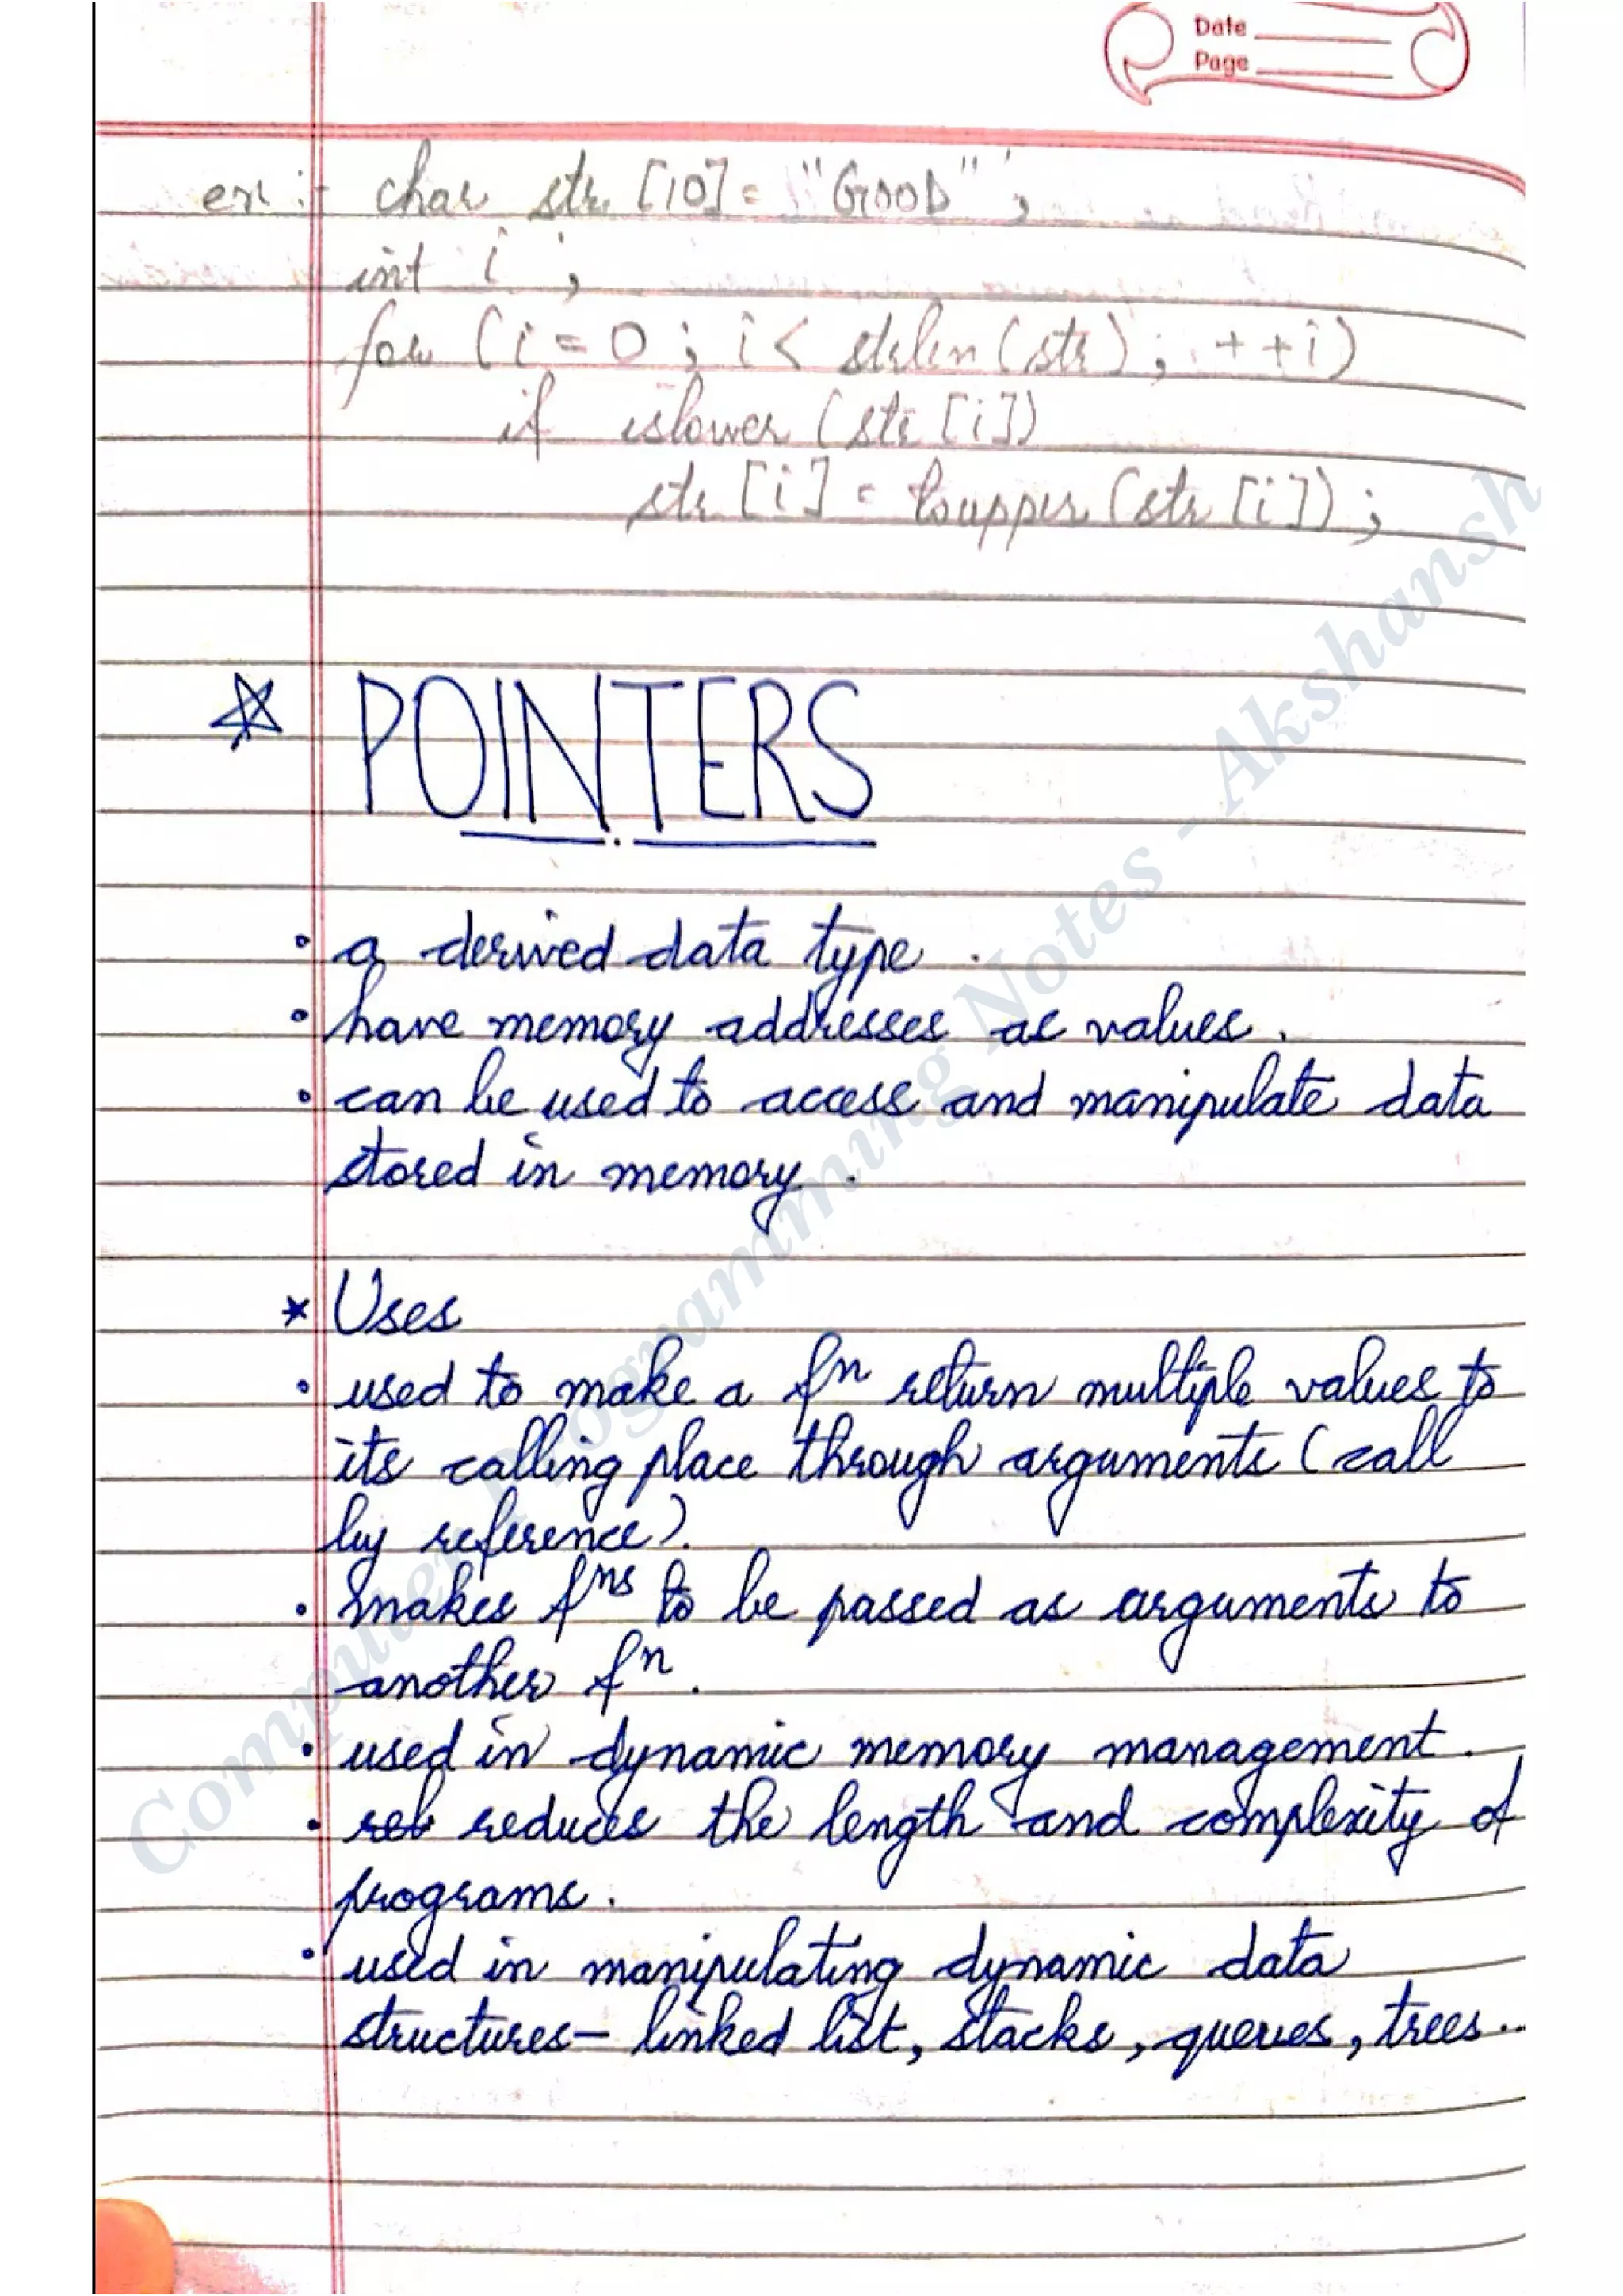 Date
Page
ex :- char str [10] = "GOOD" ;
int i ;
for (i = 0 ; i < strlen (str) ; ++i)
if islower (str [i])
str [i] = toupper (str [i]) ;
☆ POINTERS
• a derived data type .
• have memory addresses as values .
• can be used to access and manipulate data
stored in memory .
* Uses
• used to make a fⁿ return multiple values to
its calling place through arguments (call
by reference).
• makes fⁿˢ to be passed as arguments to
another fⁿ .
• used in dynamic memory management .
• reduces the length and complexity of
programs .
• used in manipulating dynamic data
structures – linked list, stacks, queues, trees ..
Computer Programming Notes - Akshansh